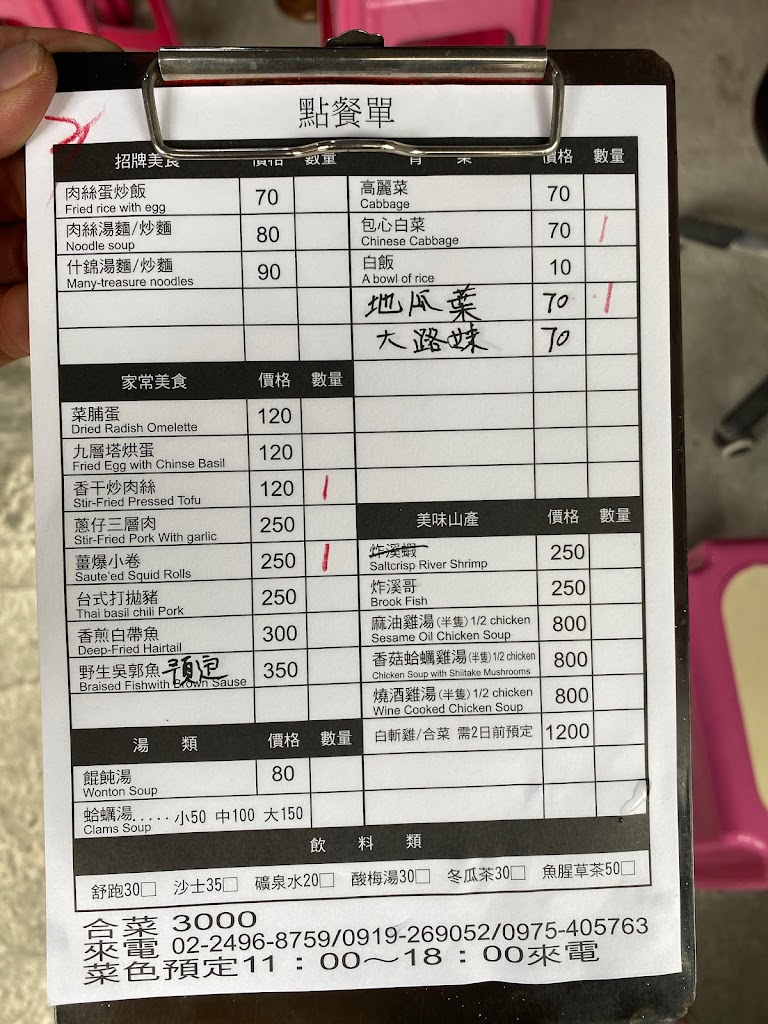 點餐單
招牌美食 價格 數量
肉絲蛋炒飯 70
Fried rice with egg
肉絲湯麵/炒麵 80
Noodle soup
什錦湯麵/炒麵 90
Many-treasure noodles
家常美食 價格 數量
菜脯蛋 120
Dried Radish Omelette
九層塔烘蛋 120
Fried Egg with Chinse Basil
香干炒肉絲 120 1
Stir-Fried Pressed Tofu
蔥仔三層肉 250
Stir-Fried Pork With garlic
薑爆小卷 250 1
Saute'ed Squid Rolls
台式打拋豬 250
Thai basil chili Pork
香煎白帶魚 300
Deep-Fried Hairtail
野生吳郭魚 預定 350
Braised Fishwith Brown Sause
湯 類 價格 數量
餛飩湯 80
Wonton Soup
蛤蠣湯..... 小50 中100 大150
Clams Soup
青 菜 價格 數量
高麗菜 70
Cabbage
包心白菜 70 1
Chinese Cabbage
白飯 10
A bowl of rice
地瓜葉 70 1
大路妹 70
美味山產 價格 數量
炸溪蝦 250
Saltcrisp River Shrimp
炸溪哥 250
Brook Fish
麻油雞湯(半隻)1/2 chicken 800
Sesame Oil Chicken Soup
香菇蛤蠣雞湯(半隻)1/2 chicken 800
Chicken Soup with Shiitake Mushrooms
燒酒雞湯(半隻)1/2 chicken 800
Wine Cooked Chicken Soup
白斬雞/合菜 需2日前預定 1200
飲 料 類
舒跑30□ 沙士35□ 礦泉水20□ 酸梅湯30□ 冬瓜茶30□ 魚腥草茶50□
合菜 3000
來電 02-2496-8759/0919-269052/0975-405763
菜色預定11：00～18：00來電